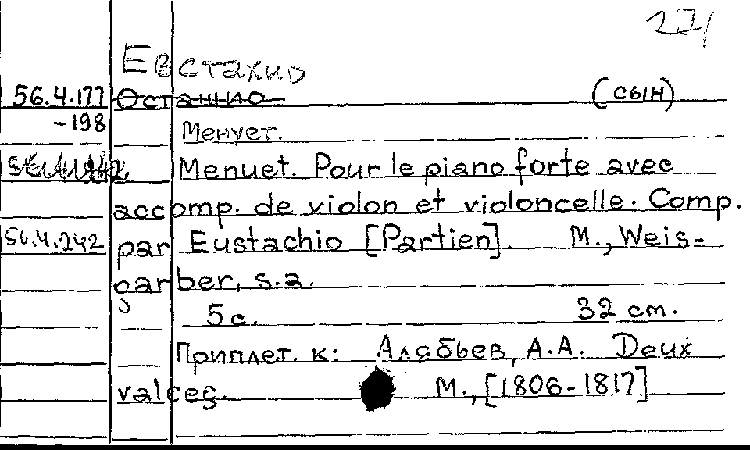 27/
Евстахио
56.4.177 Останио (сын)
-198 Менует.
Menuet. Pour le piano forte avec
accomp. de violon et violoncelle. Comp.
56.4.242 par Eustachio [Partien]. M., Weis-
garber, s.a.
5 с. 32 cm.
Приплет. к: Алябьев, А.А. Deux
valces. M., [1806-1817]